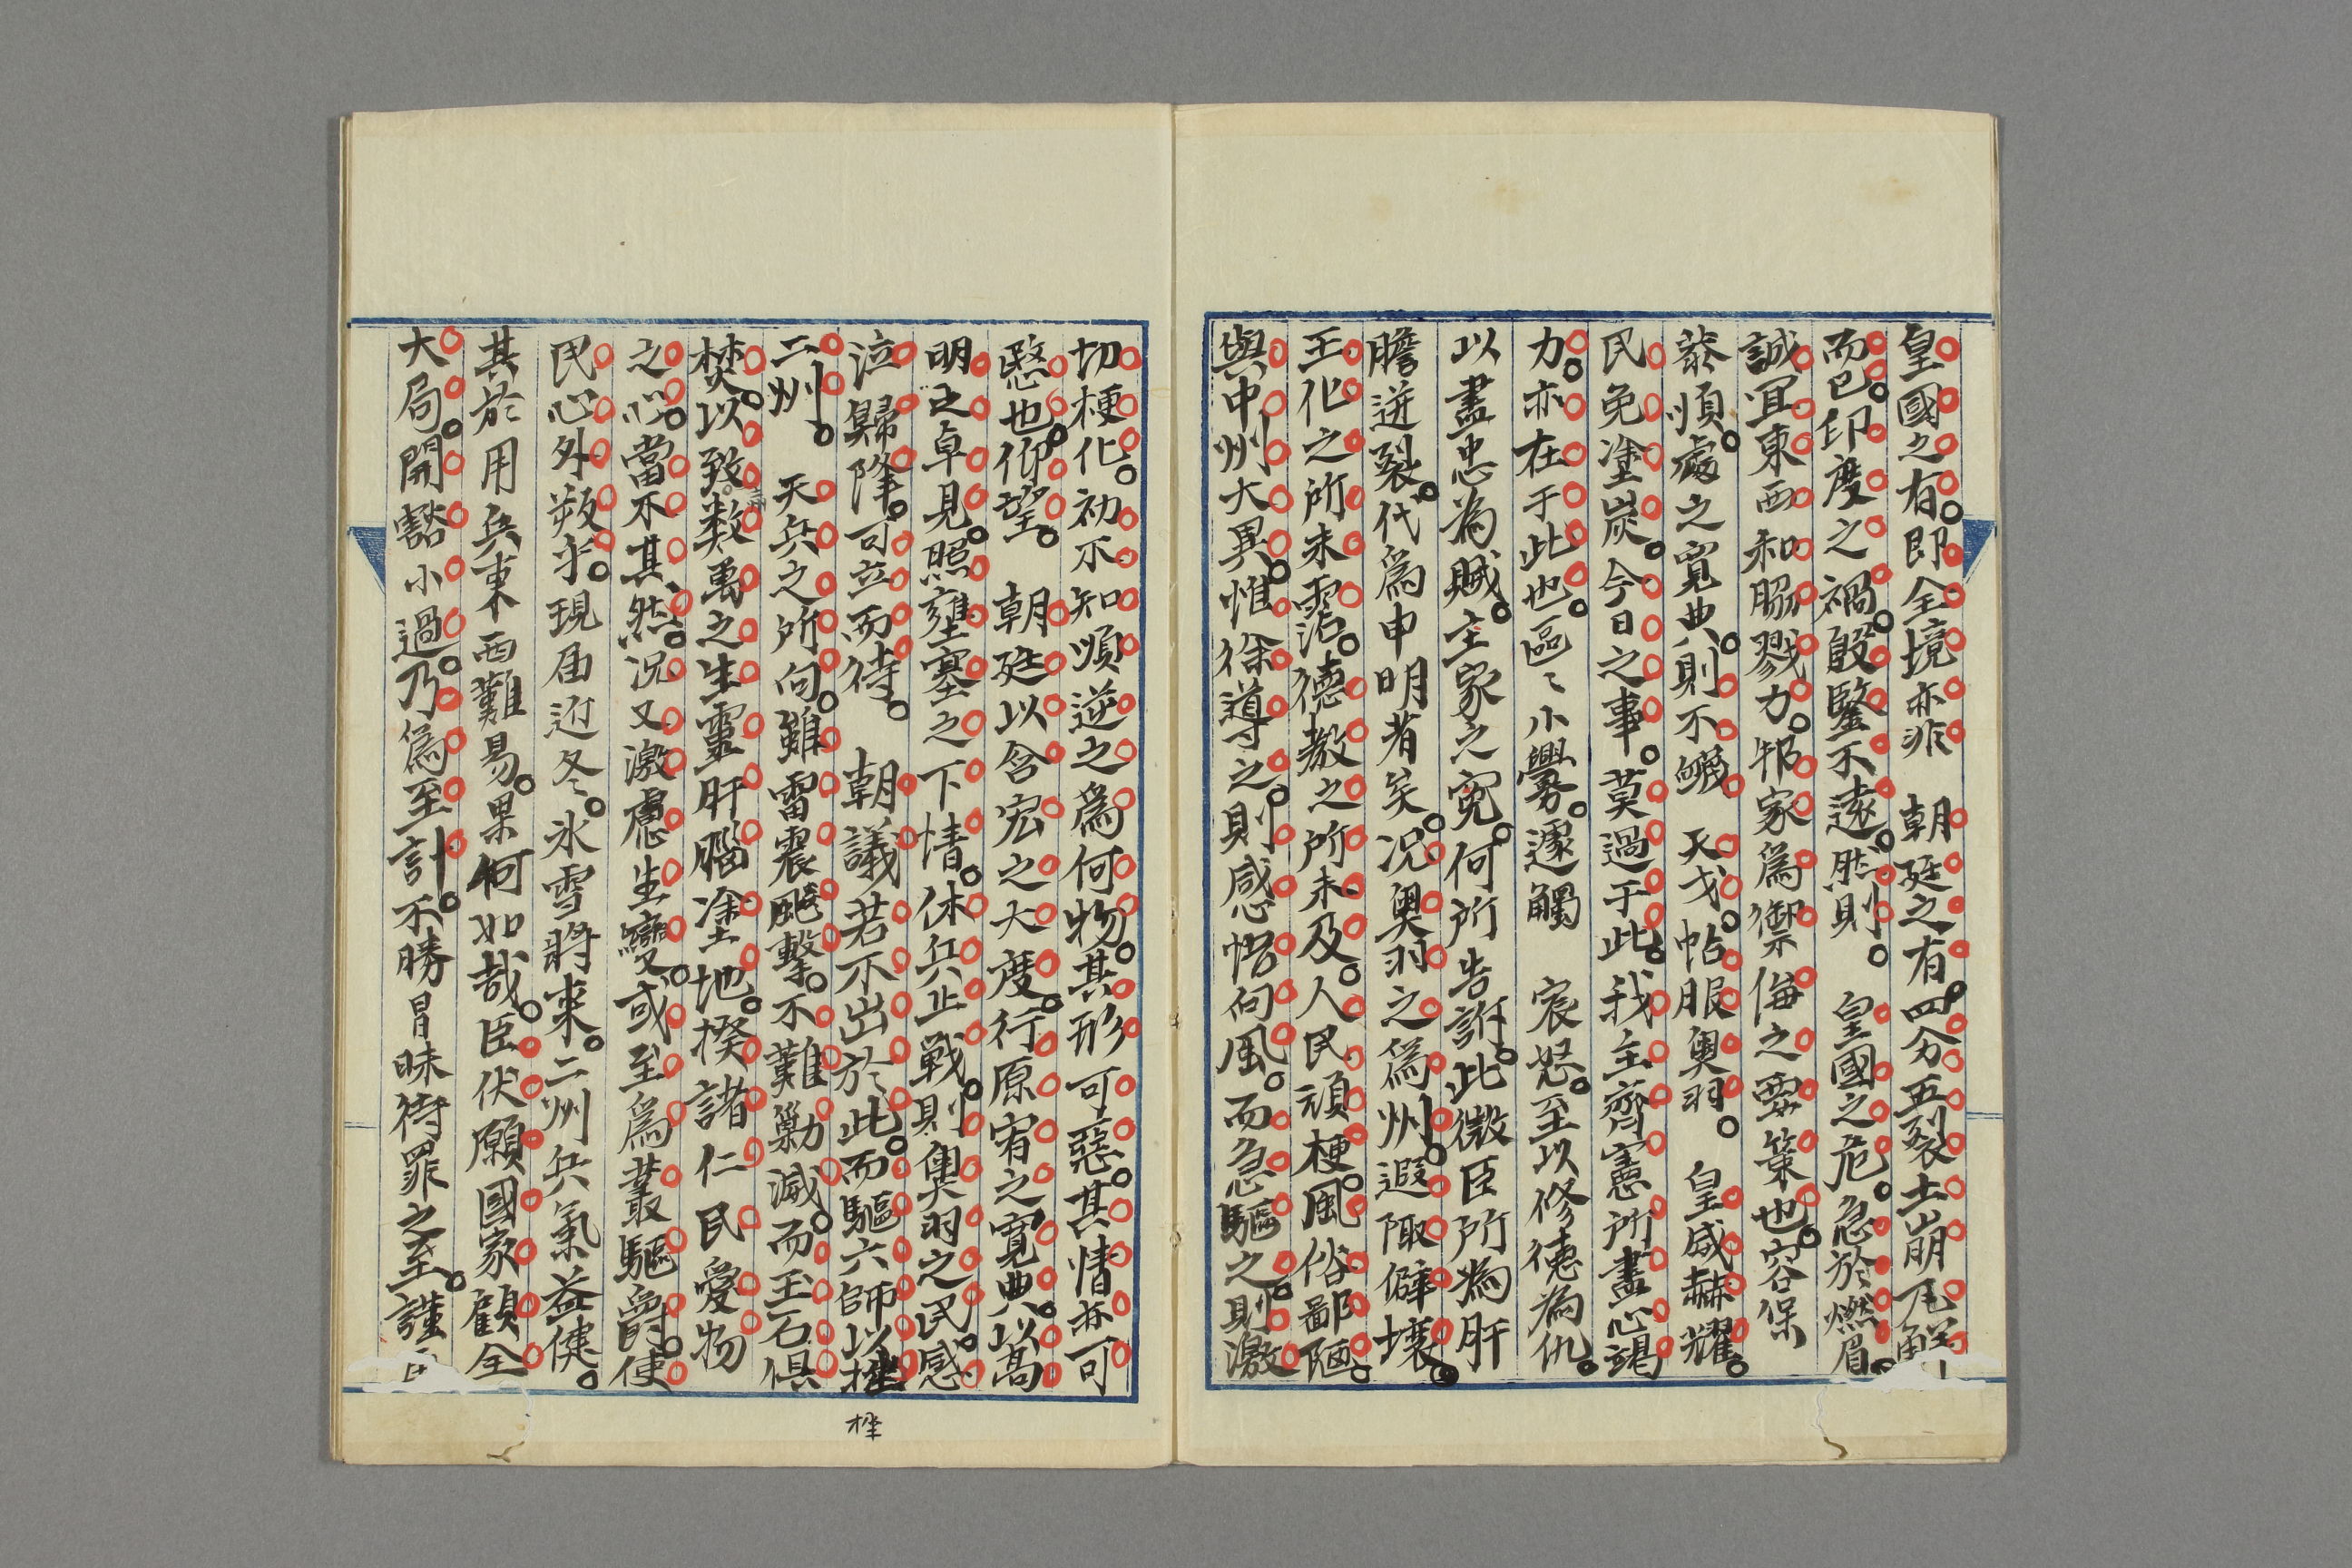 皇國之有。即全境亦非　朝廷之有。四分五裂。土崩瓦解
而已。印度之禍。殷鑒不遠。然則。　皇國之危。急於燃眉。
誠宜東西和脇戮力。邦家為禦侮之要策也。容保
恭順。處之寬典。則不衂　天戈。帖服奥羽。　皇威赫耀。
民免塗炭。今日之事。莫過于此。我主齊憲所盡心竭
力。亦在于此也。區〻小釁。遽觸　宸怒。至以修德為仇。
以盡忠為賊。主家之寃。何所告訴。此微臣所為肝
膽迸裂。代為申明者矣。况奥羽之為州。遐陬僻壤。
王化之所未霑。德教之所未及。人民頑梗。風俗鄙陋。
與中州大異。惟徐導之。則感悟向風。而急驅之。則激
切梗化。初不知順逆之為何物。其形可惡。其情亦可
愍也。仰望。　朝廷以含宏之大度。行原宥之寬典。以高
明之卓見。照壅塞之下情。休兵止戰。則奥羽之民。感
泣歸降。可立而待。　朝議若不出於此。而驅六師以挫
二州。　天兵之所向。雖雷震飈擊。不難勦滅。而玉石俱
焚。以致数萬之生靈肝腦塗地。揆諸仁民愛物
之心。當不其然。况又激慮生變。或至為叢驅爵。使
民心外叛乎。現届近冬。氷雪將來。二州兵氣益健。
其於用兵東西難易。果何如哉。臣伏願國家顧全
大局。開豁小過。乃為至計。不勝冒昧待罪之至。謹